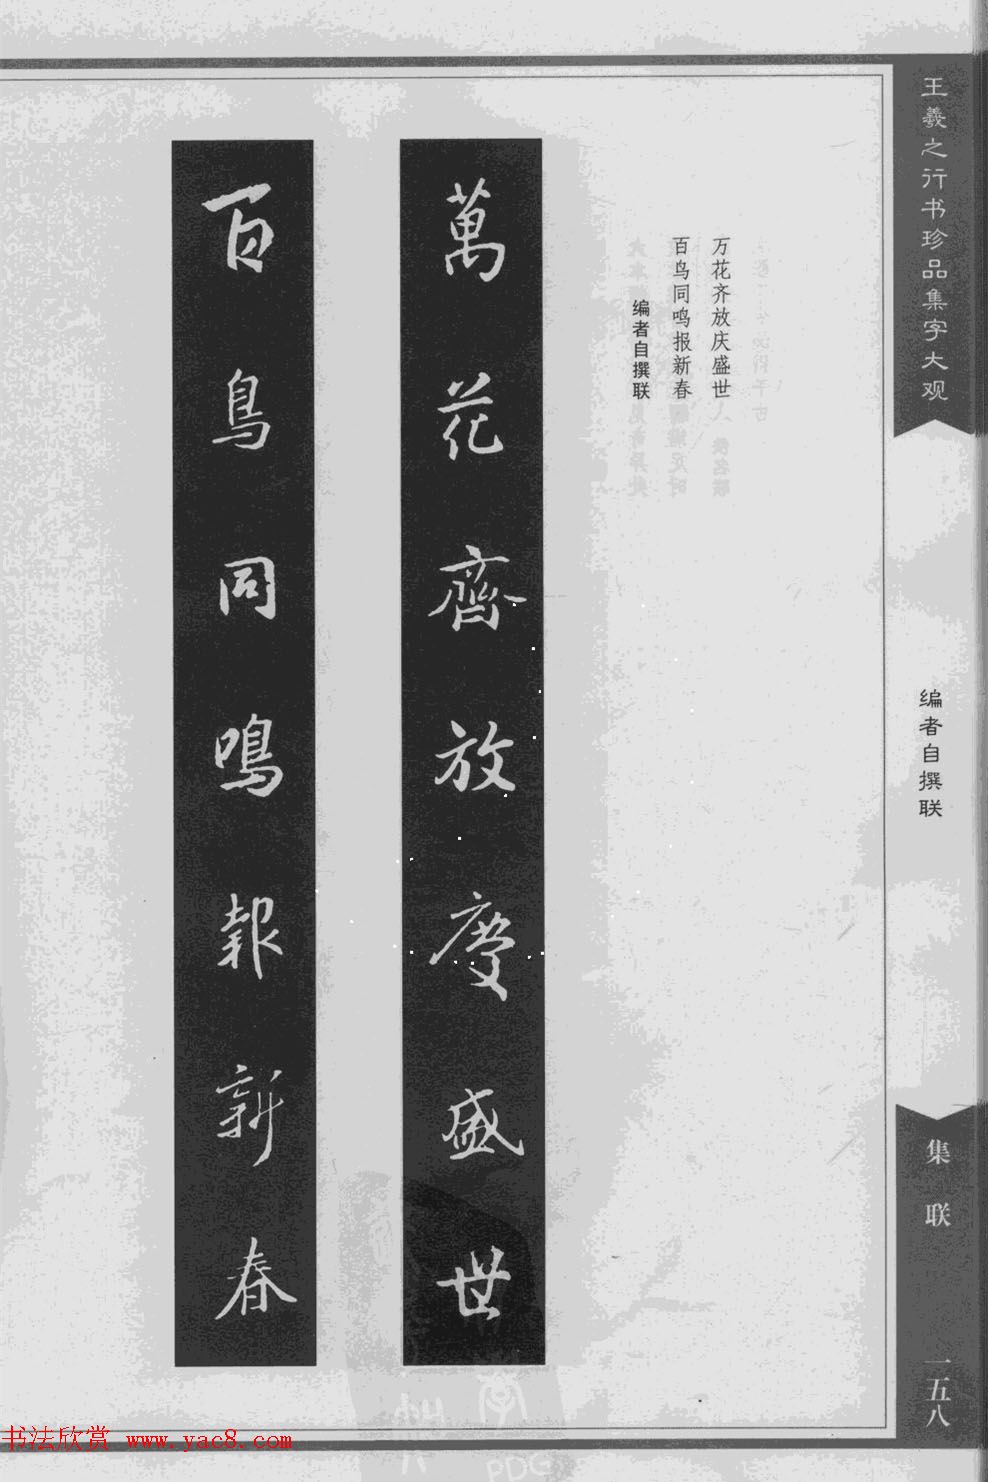 王羲之行书珍品集字大观
编者自撰联
集联
一五八
万花齐放庆盛世
百鸟同鸣报新春
编者自撰联
萬花齊放慶盛世
百鳥同鳴報新春
书法欣赏 www.yac8.com
PDG